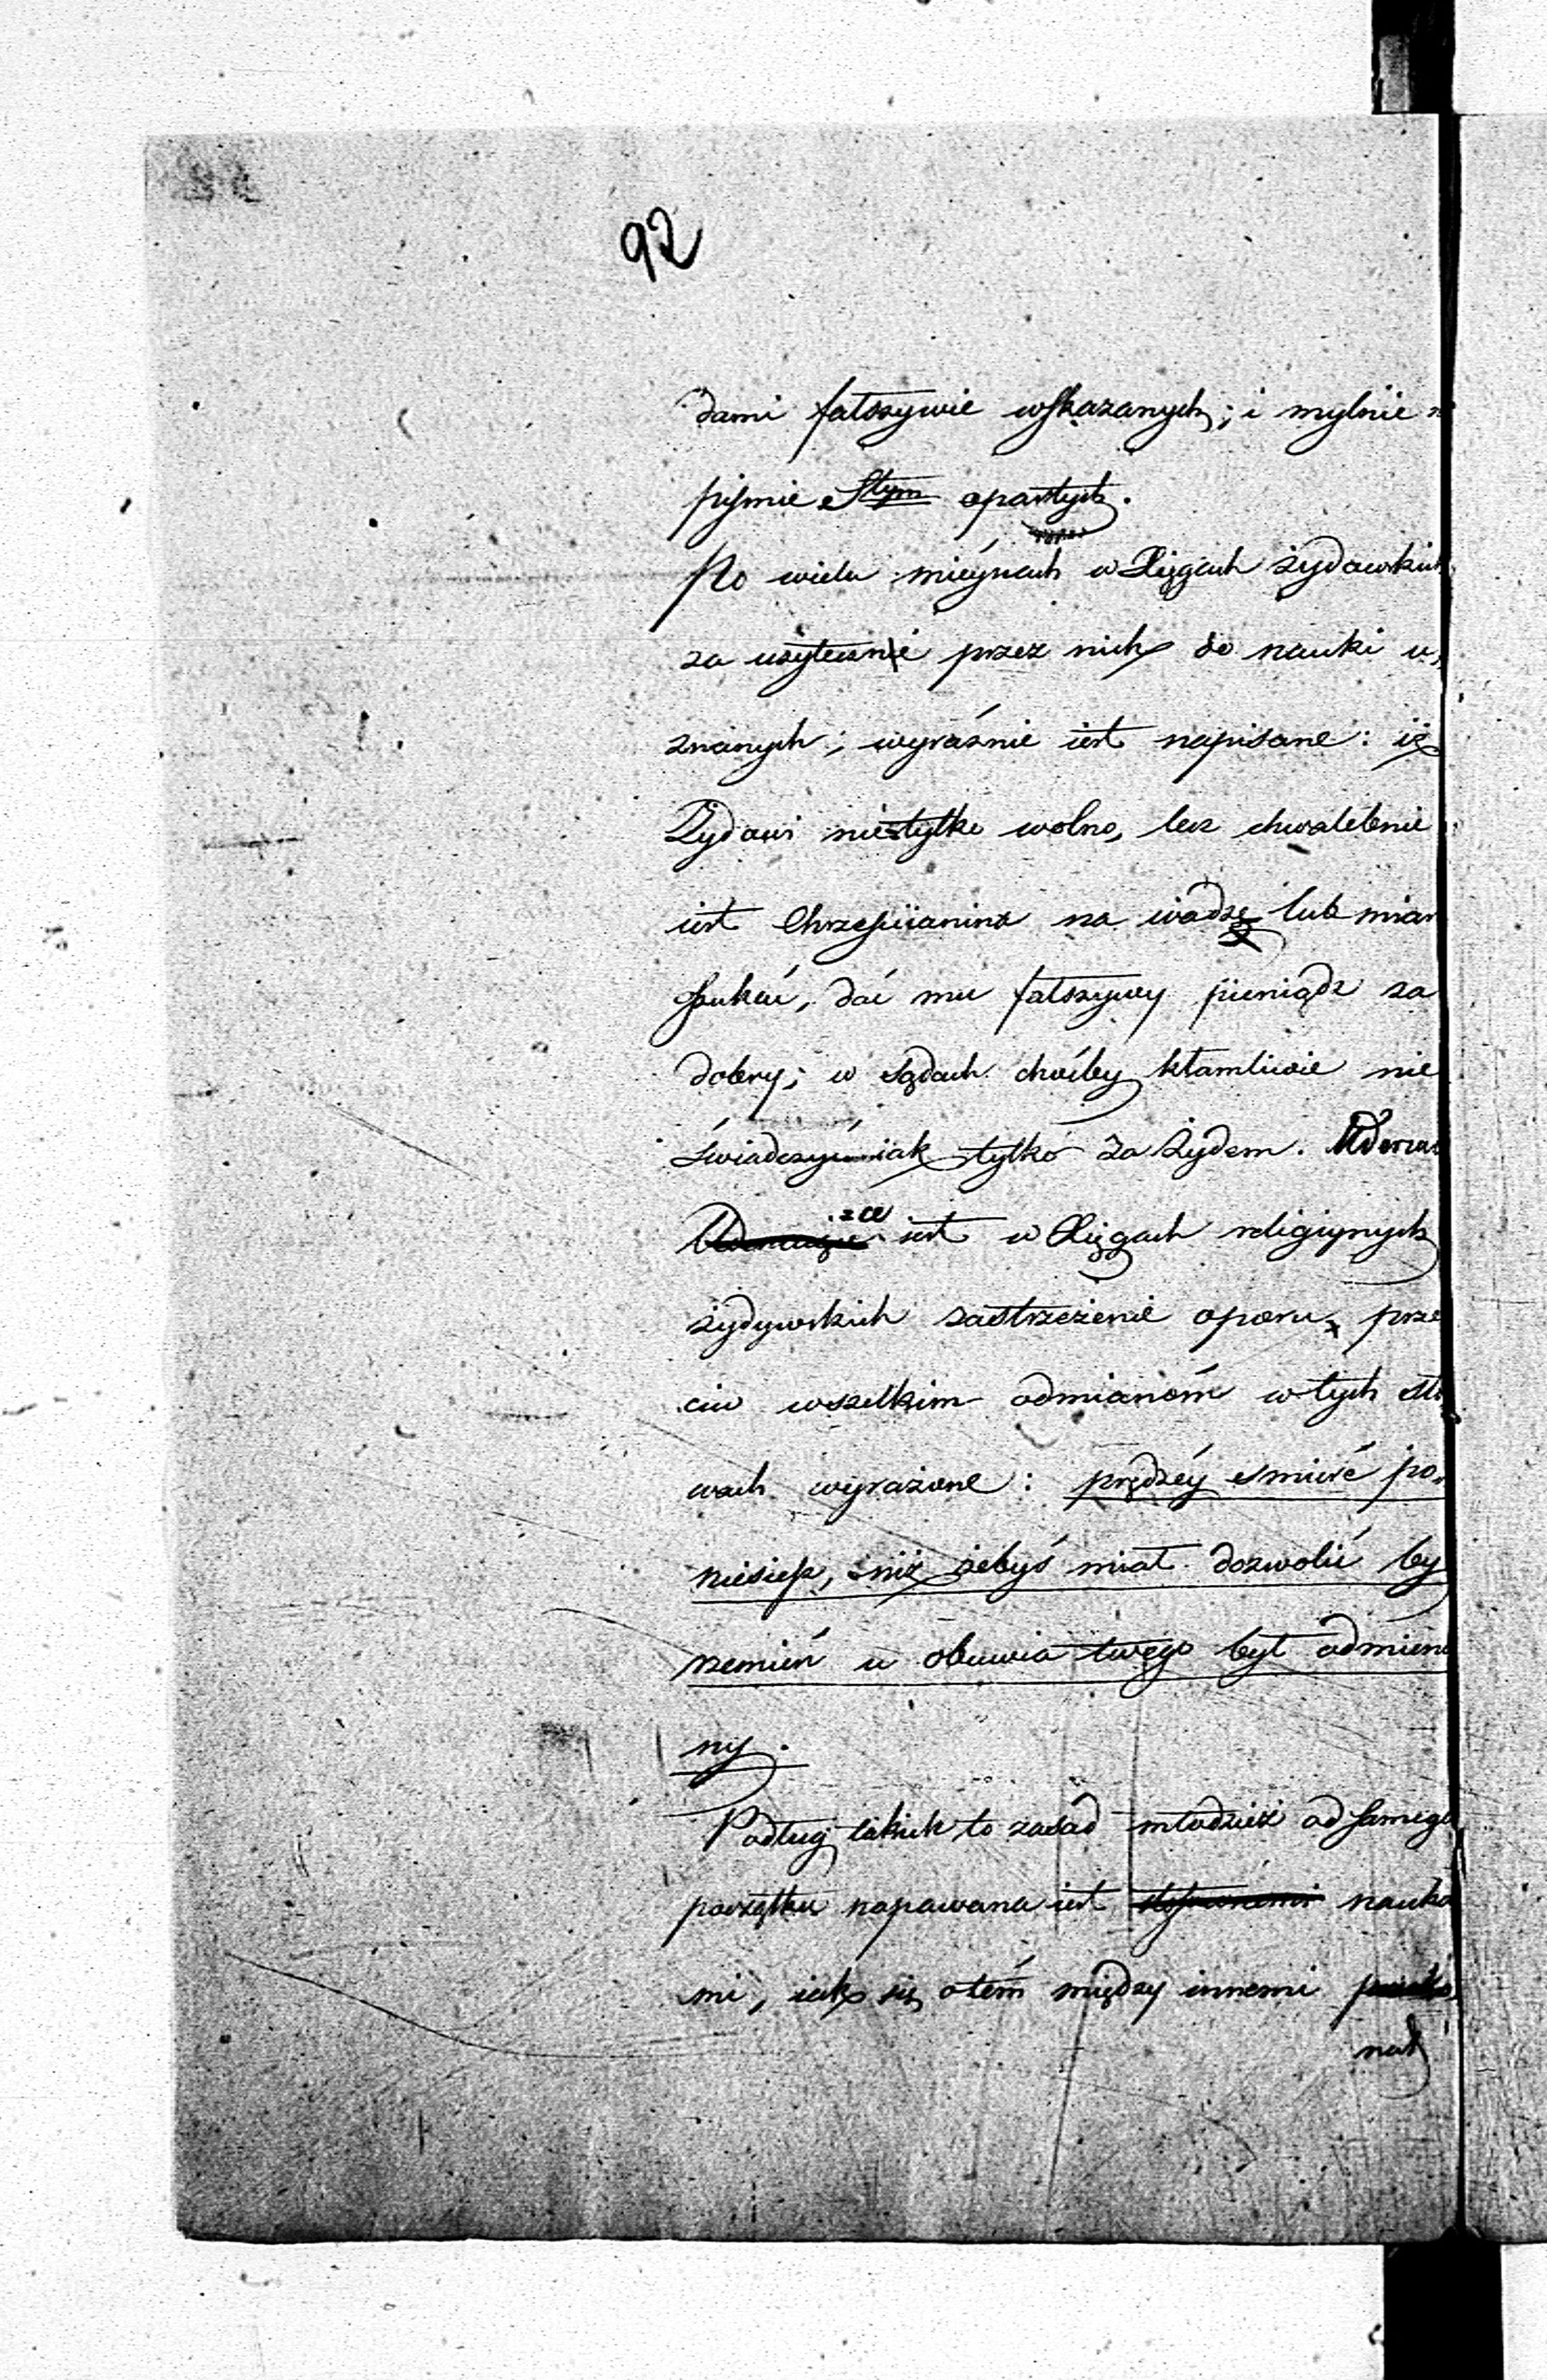 92
dami fałszywie wskazanych; i mylnie n
piśmie Stym opartych.
Po wielu mieyscach w Xięgach żydowskich
za użyteczne przez nich do nauki u,
znanych; wyraźnie iest napisane: iż
Żydowi nietylko wolno, lecz chwalebnie
iest Chrześciianina na wadze lub miar
szukać, dać mu fałszywy pieniądz za
dobry; w sądach choćby kłamliwie nie
świadczyć iak tylko za Żydem. Uderza
iące iest w Xięgach religiynych
żydowskich zastrzeżenie oporu, prze
ciw wszelkim odmianóm w tych sło
wach wyrażone: prędzéy smierć po,
niesiesz, niż żebyś miał dozwolić by
rzemień u obuwia twego był odmienio
ny.
Podług takich to zasad młodzież od samego
początku napawana iest nauka
mi, iak się otém między innemi